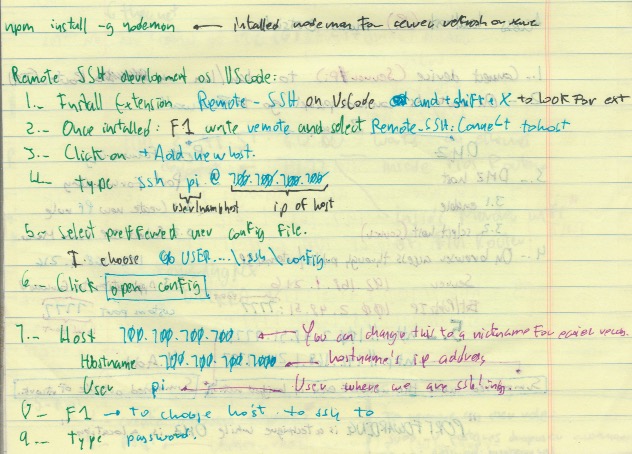 npm install -g nodemon ← intalled nodemon for server refresh on save
Remote SSH development on VScode:
1.- Install Extension Remote - SSH on VsCode cmd + shift + X to look for ext
2.- Once installed: F1 write remote and select Remote-SSH: Connect to host
3.- Click on + Add new host.
4.- type ssh pi @ 700.700.700.700
user/name host ip of host
5.- Select preffered user config file.
I choose USER...\.ssh\config
6.- Click open config
7.- Host 700.700.700.700 ← You can change this to a nickname for easier
Hostname 700.700.700.700 ← hostname's ip address
User pi ← User where we are ssh'ing.
8.- F1 → to choose host to ssh to
9.- type password.